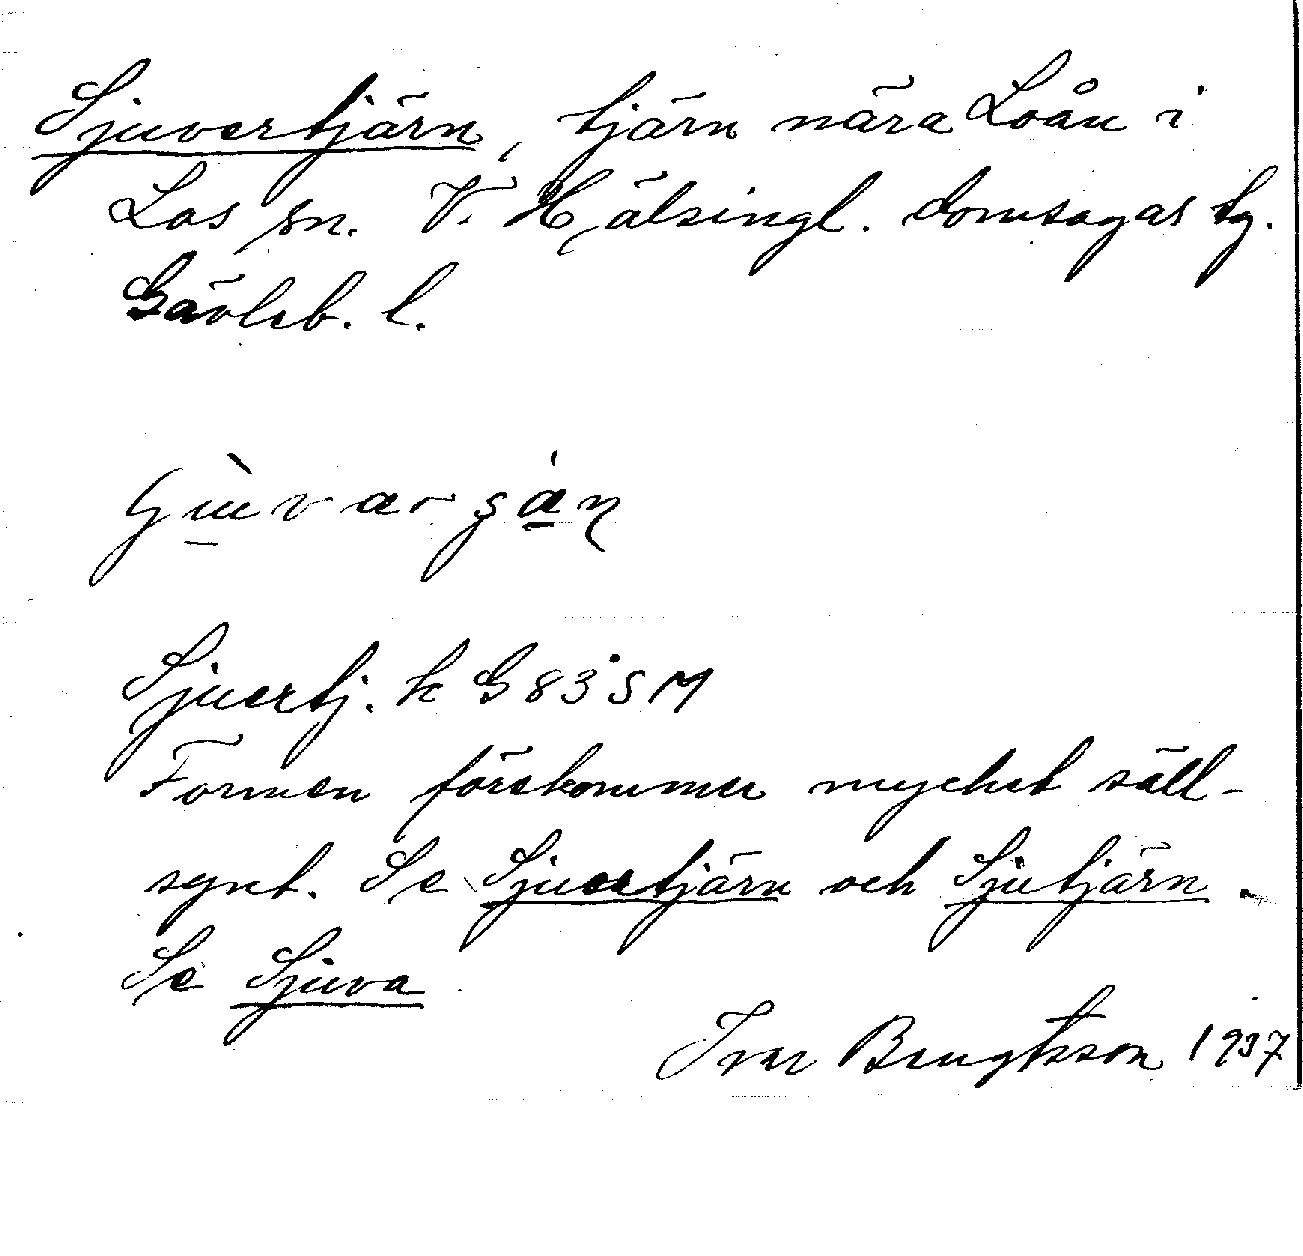 Sjuvertjärn, tjärn nära Loån i
Los sn. V. Hälsingl. domsagas tg.
Gävleb. l.
Sjuertj. k G 83 SM
Formen förekommer mycket säll-
synt. Se Sjuertjärn och Sjutjärn.
Se Sjuva
Ivar Bengtsson 1937